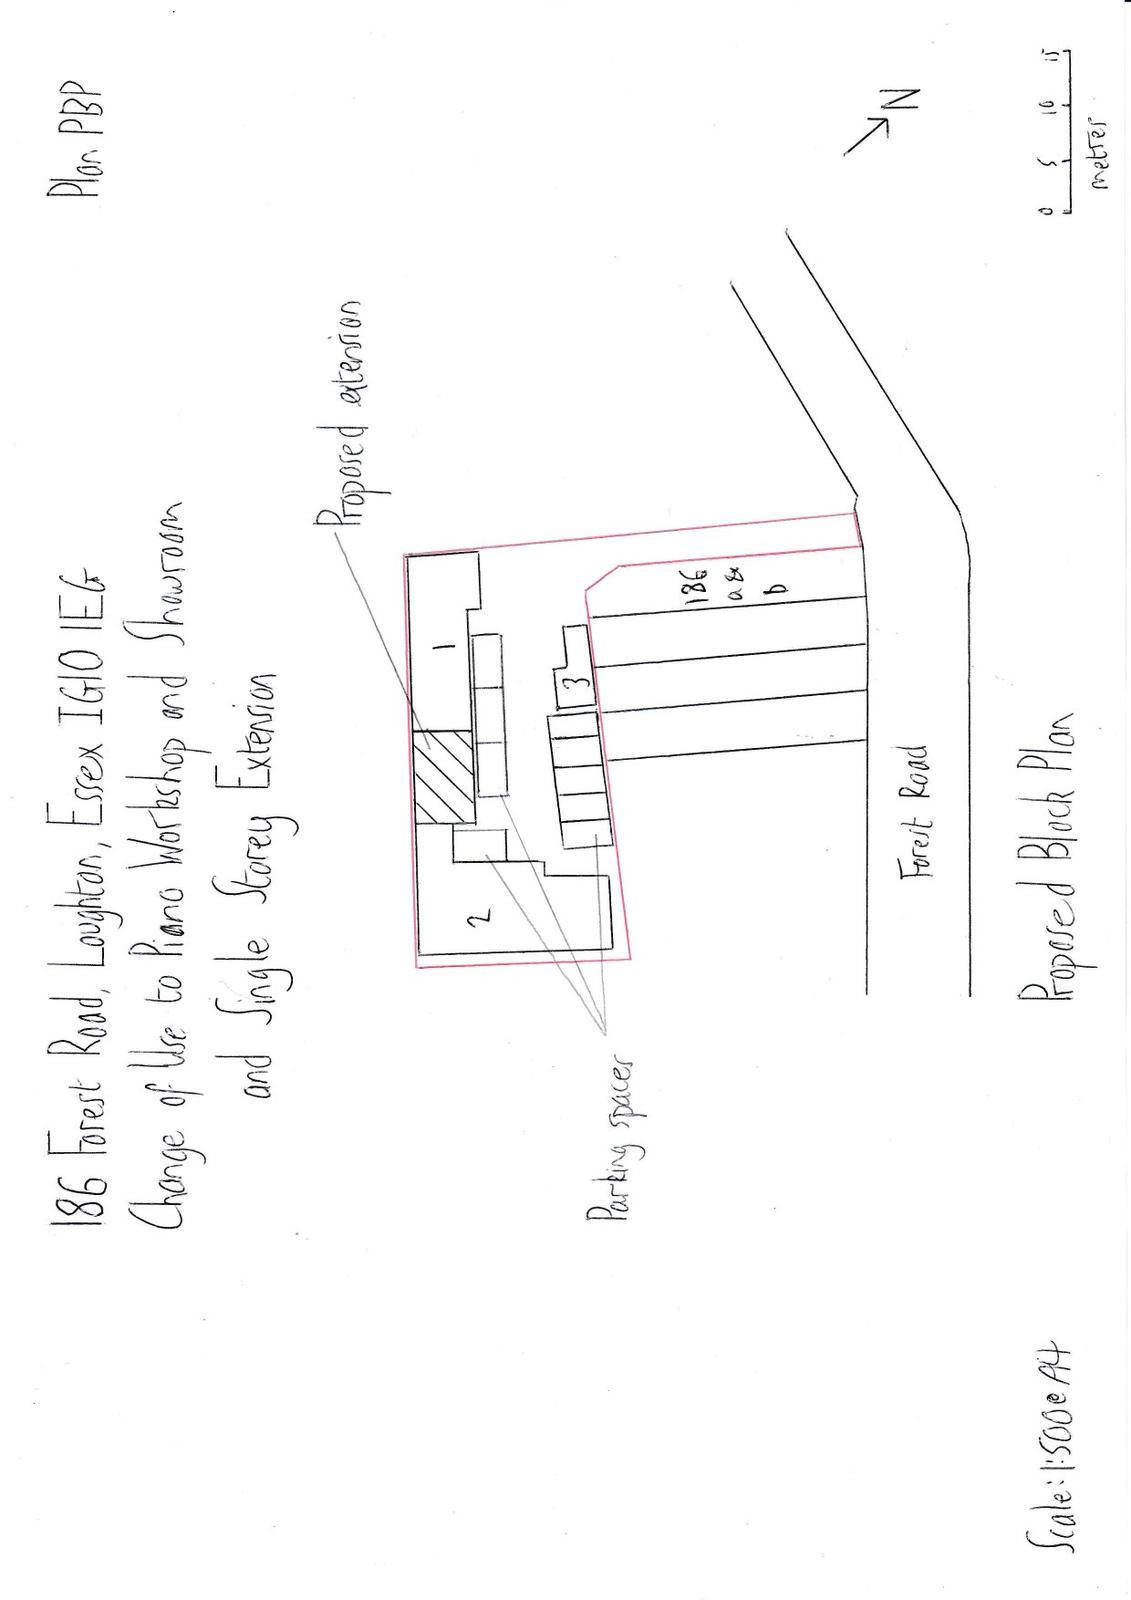 186 Forest Road, Loughton, Essex IG10 1EG
Change of Use to Piano Workshop and Showroom
and Single Storey Extension
Plan PBP
Proposed extension
1
2
3
186
a &
b
Parking spaces
Forest Road
N
Scale: 1:500 @ A4
Proposed Block Plan
0 5 10 15
metres